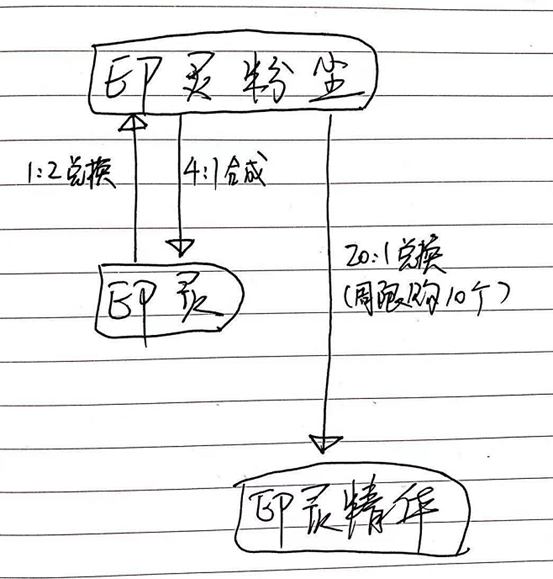 印灵粉尘
1:2兑换
4:1合成
20:1兑换
(周限购10个)
印灵
印灵精华